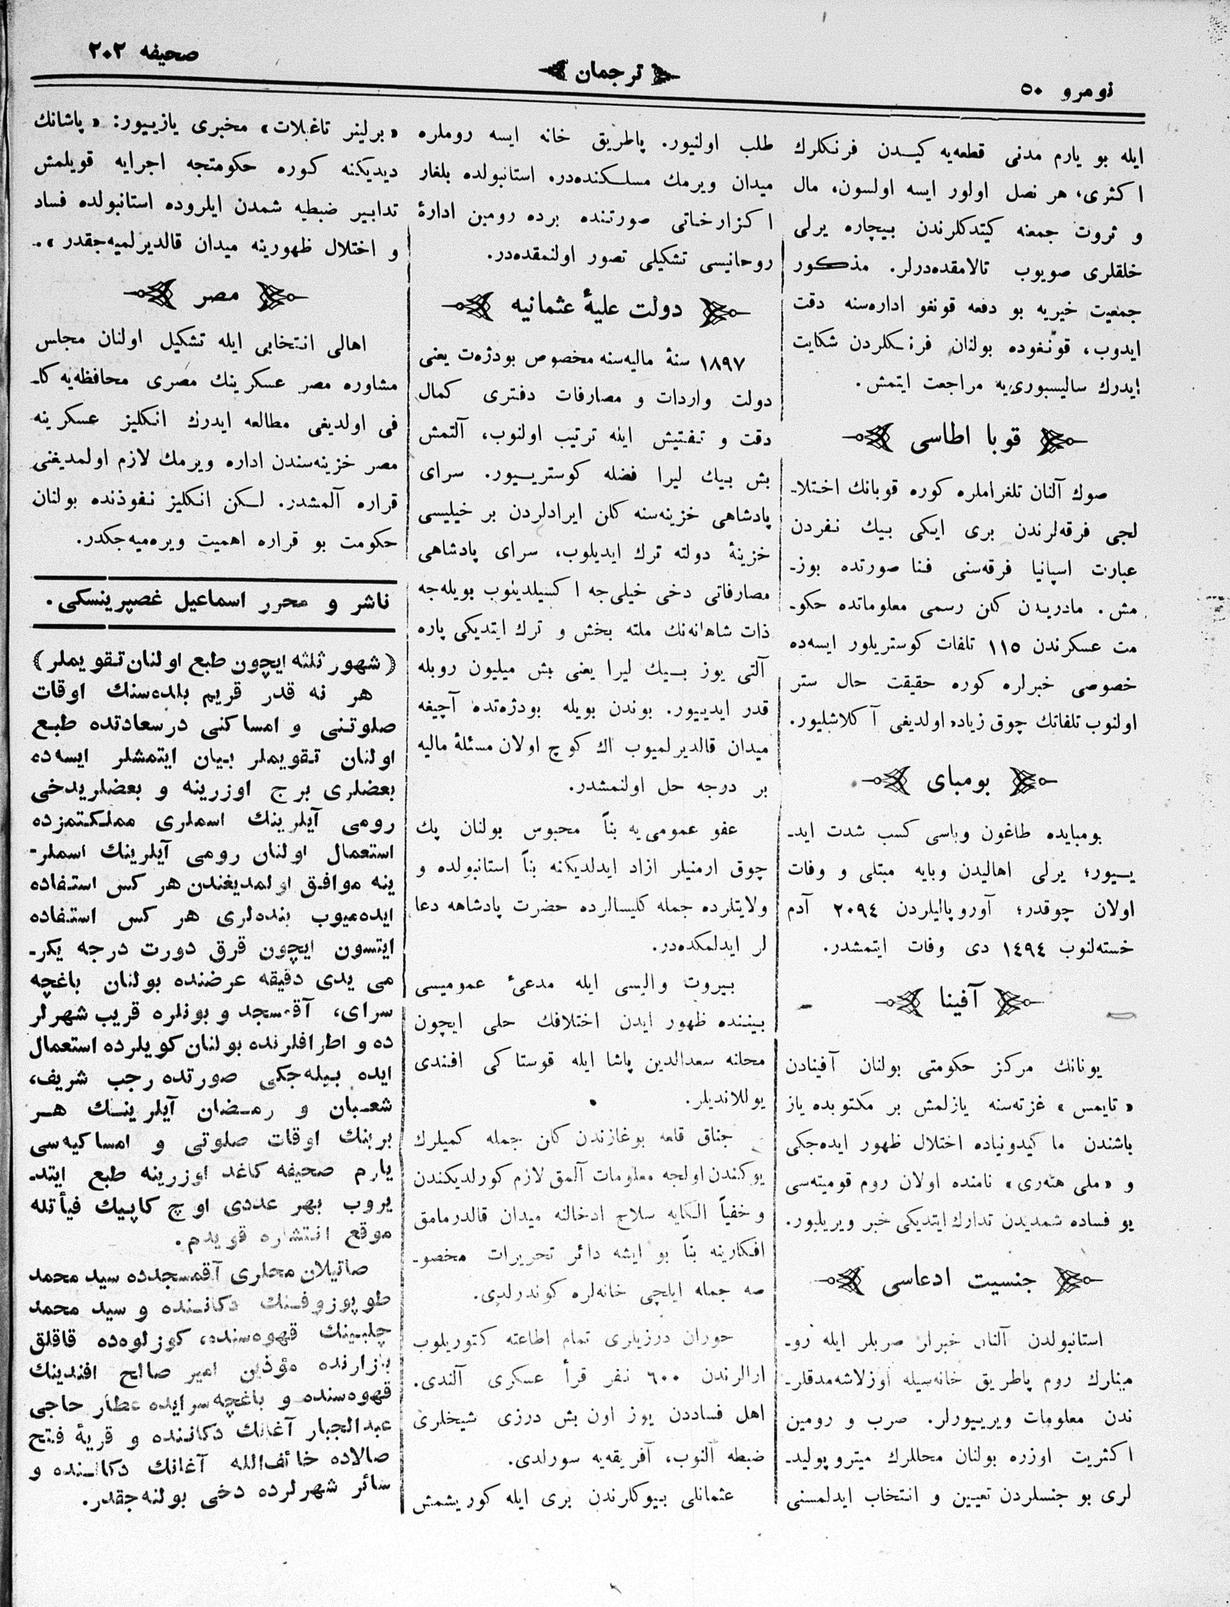 نومرو ٥٠
ترجمان
صحيفه ٢٠٢
ايله بو يارم مدنى قطعه‌يه كيدن فرنكلرك
اكثرى، هر نصل اولور ايسه اولسون، مال
و ثروت جمعنه كيتدكلرندن بيچاره يرلى
خلقلرى صويوب تالامقده‌درلر. مذكور
جمعيت خيريه بو دفعه قونغو اداره‌سنه دقت
ايدوب، قونغوده بولنان فرنكلردن شكايت
ايدرك ساليسبورى‌يه مراجعت ايتمش.
قوبا اطاسى
صوك آلنان تلغراملره كوره قوبانك اختلا-
لجى فرقه‌لرندن برى ايكى بيك نفردن
عبارت اسپانيا فرقه‌سنى فنا صورتده بوز-
مش. مادريدن كلن رسمى معلوماتده حكو-
مت عسكرندن ١١٥ تلفات كوستريلور ايسه‌ده
خصوصى خبرلره كوره حقيقت حال ستر
اولنوب تلفاتك چوق زياده اولديغى آكلاشليور.
بومباى
بومبايده طاغون وباسى كسب شدت ايد-
ييور؛ يرلى اهاليدن وبايه مبتلى و وفات
اولان چوقدر؛ آوروپاليلردن ٢٠٩٤ آدم
خسته‌لنوب ١٤٩٤ دى وفات ايتمشدر.
آفينا
يونانك مركز حكومتى بولنان آفينادن
«تايمس» غزته‌سنه يازلمش بر مكتوبده ياز
باشندن ماكيدونياده اختلال ظهور ايده‌جكى
و «ملى هته‌رى» نامنده اولان روم قوميته‌سى
بو فساده شمديدن تدارك ايتديكى خبر ويريليور.
جنسيت ادعاسى
استانبولدن آلنان خبرلر صربلر ايله رو-
مينلرك روم پاطريق خانه‌سيله اوزلاشه‌مدقلر-
ندن معلومات ويرييورلر. صرب و رومين
اكثريت اوزره بولنان محللرك ميتروپوليد-
لرى بو جنسلردن تعيين و انتخاب ايدلمسنى
طلب اولنيور. پاطريق خانه ايسه روملره
ميدان ويرمك مسلكنده‌در. استانبولده بلغار
اكزارخاتى صورتنده برده رومين ادارۀ
روحانيسى تشكيلى تصور اولنمقده‌در.
دولت عليۀ عثمانيه
١٨٩٧ سنۀ ماليه‌سنه مخصوص بودژه‌ت يعنى
دولت واردات و مصارفات دفترى كمال
دقت و تفتيش ايله ترتيب اولنوب، آلتمش
بش بيك ليرا فضله كوسترييور. سراى
پادشاهى خزينه‌سنه كلن ايرادلردن بر خيليسى
خزينۀ دولته ترك ايديلوب، سراى پادشاهى
مصارفاتى دخى خيلى‌جه اكسيلدينوب بويله‌جه
ذات شاهانه‌نك ملته بخش و ترك ايتديكى پاره
آلتى يوز بيك ليرا يعنى بش ميليون روبله
قدر ايدييور. بوندن بويله بودژه‌تده آچيغه
ميدان قالديرلميوب اك كوچ اولان مسئلۀ ماليه
بر درجه حل اولنمشدر.
عفو عمومى‌يه بناً محبوس بولنان پك
چوق ارمنيلر ازاد ايدلديكنه بناً استانبولده و
ولايتلرده جمله كليسالرده حضرت پادشاهه دعا
لر ايدلمكده‌در.
بيروت واليسى ايله مدعئ عموميسى
بيننده ظهور ايدن اختلافك حلى ايچون
محلنه سعدالدين پاشا ايله قوستاكى افندى
يوللانديلر.
جناق قلعه بوغازندن كلن جمله كميلرك
يوكندن اولجه معلومات آلمق لازم كورلديكندن
و خفياً اسلحه سلاح ادخالنه ميدان قالدرمامق
افكارينه بناً بو ايشه دائر تحريرات مخصو-
صه جمله ايلچى خانه‌لره كوندرلدى.
حوران درزيلرى تمام اطاعته كتوريلوب
ارالرندن ٦٠٠ نفر قرأ عسكرى آلندى.
اهل فساددن يوز اون بش درزى شيخلرى
ضبطه آلنوب، آفريقه‌يه سورلدى.
عثمانلى بيوكلرندن برى ايله كوريشمش
«برلينر تاغبلات» مخبرى يازييور: «پاشانك
ديديكنه كوره حكومتجه اجرايه قويلمش
تدابير ضبطيه شمدن ايلروده استانبولده فساد
و اختلال ظهورينه ميدان قالديرلميه‌جقدر»..
مصر
اهالى انتخابى ايله تشكيل اولنان مجلس
مشاوره مصر عسكرينك مصرى محافظه‌يه كا-
فى اولديغى مطالعه ايدرك انكليز عسكرينه
مصر خزينه‌سندن اداره ويرمك لازم اولمديغنى
قراره آلمشدر. لكن انكليز نفوذنده بولنان
حكومت بو قراره اهميت ويره‌ميه‌جكدر.
ناشر و محرر اسماعيل غصپرينسكى.
(شهور ثلثه ايچون طبع اولنان تقويملر)
هر نه قدر قريم بلده‌سنك اوقات
صلوتنى و امساكنى درسعادتده طبع
اولنان تقويملر بيان ايتمشلر ايسه‌ده
بعضلرى برج اوزرينه و بعضلريدخى
رومى آيلرينك اسملرى مملكتمزده
استعمال اولنان رومى آيلرينك اسملر-
ينه موافق اولمديغندن هر كس استفاده
ايده‌ميوب بنده‌لرى هر كس استفاده
ايتسون ايچون قرق دورت درجه يكر-
مى يدى دقيقه عرضنده بولنان باغچه
سراى، آقمسجد و بونلره قريب شهرلر
ده و اطرافلرنده بولنان كويلرده استعمال
ايده بيله‌جكى صورتده رجب شريف،
شعبان و رمضان آيلرينك هر
برينك اوقات صلوتى و امساكيه‌سى
يارم صحيفه كاغد اوزرينه طبع ايتد-
يروب بهر عددى اوچ كاپيك فيأتله
موقع انتشاره قويدم.
صاتيلان محللرى آقمسجدده سيد محمد
طوپوزوفنك دكاننده و سيد محمد
چلبينك قهوه‌سنده، كوزلوه‌ده قاقلق
بازارنده مؤذين امير صالح افندينك
قهوه‌سنده و باغچه‌سرايده عطار حاجى
عبدالجبار آغانك دكاننده و قريۀ فتح
صالاده خائف‌الله آغانك دكاننده و
سائر شهرلرده دخى بولنه‌جقدر.